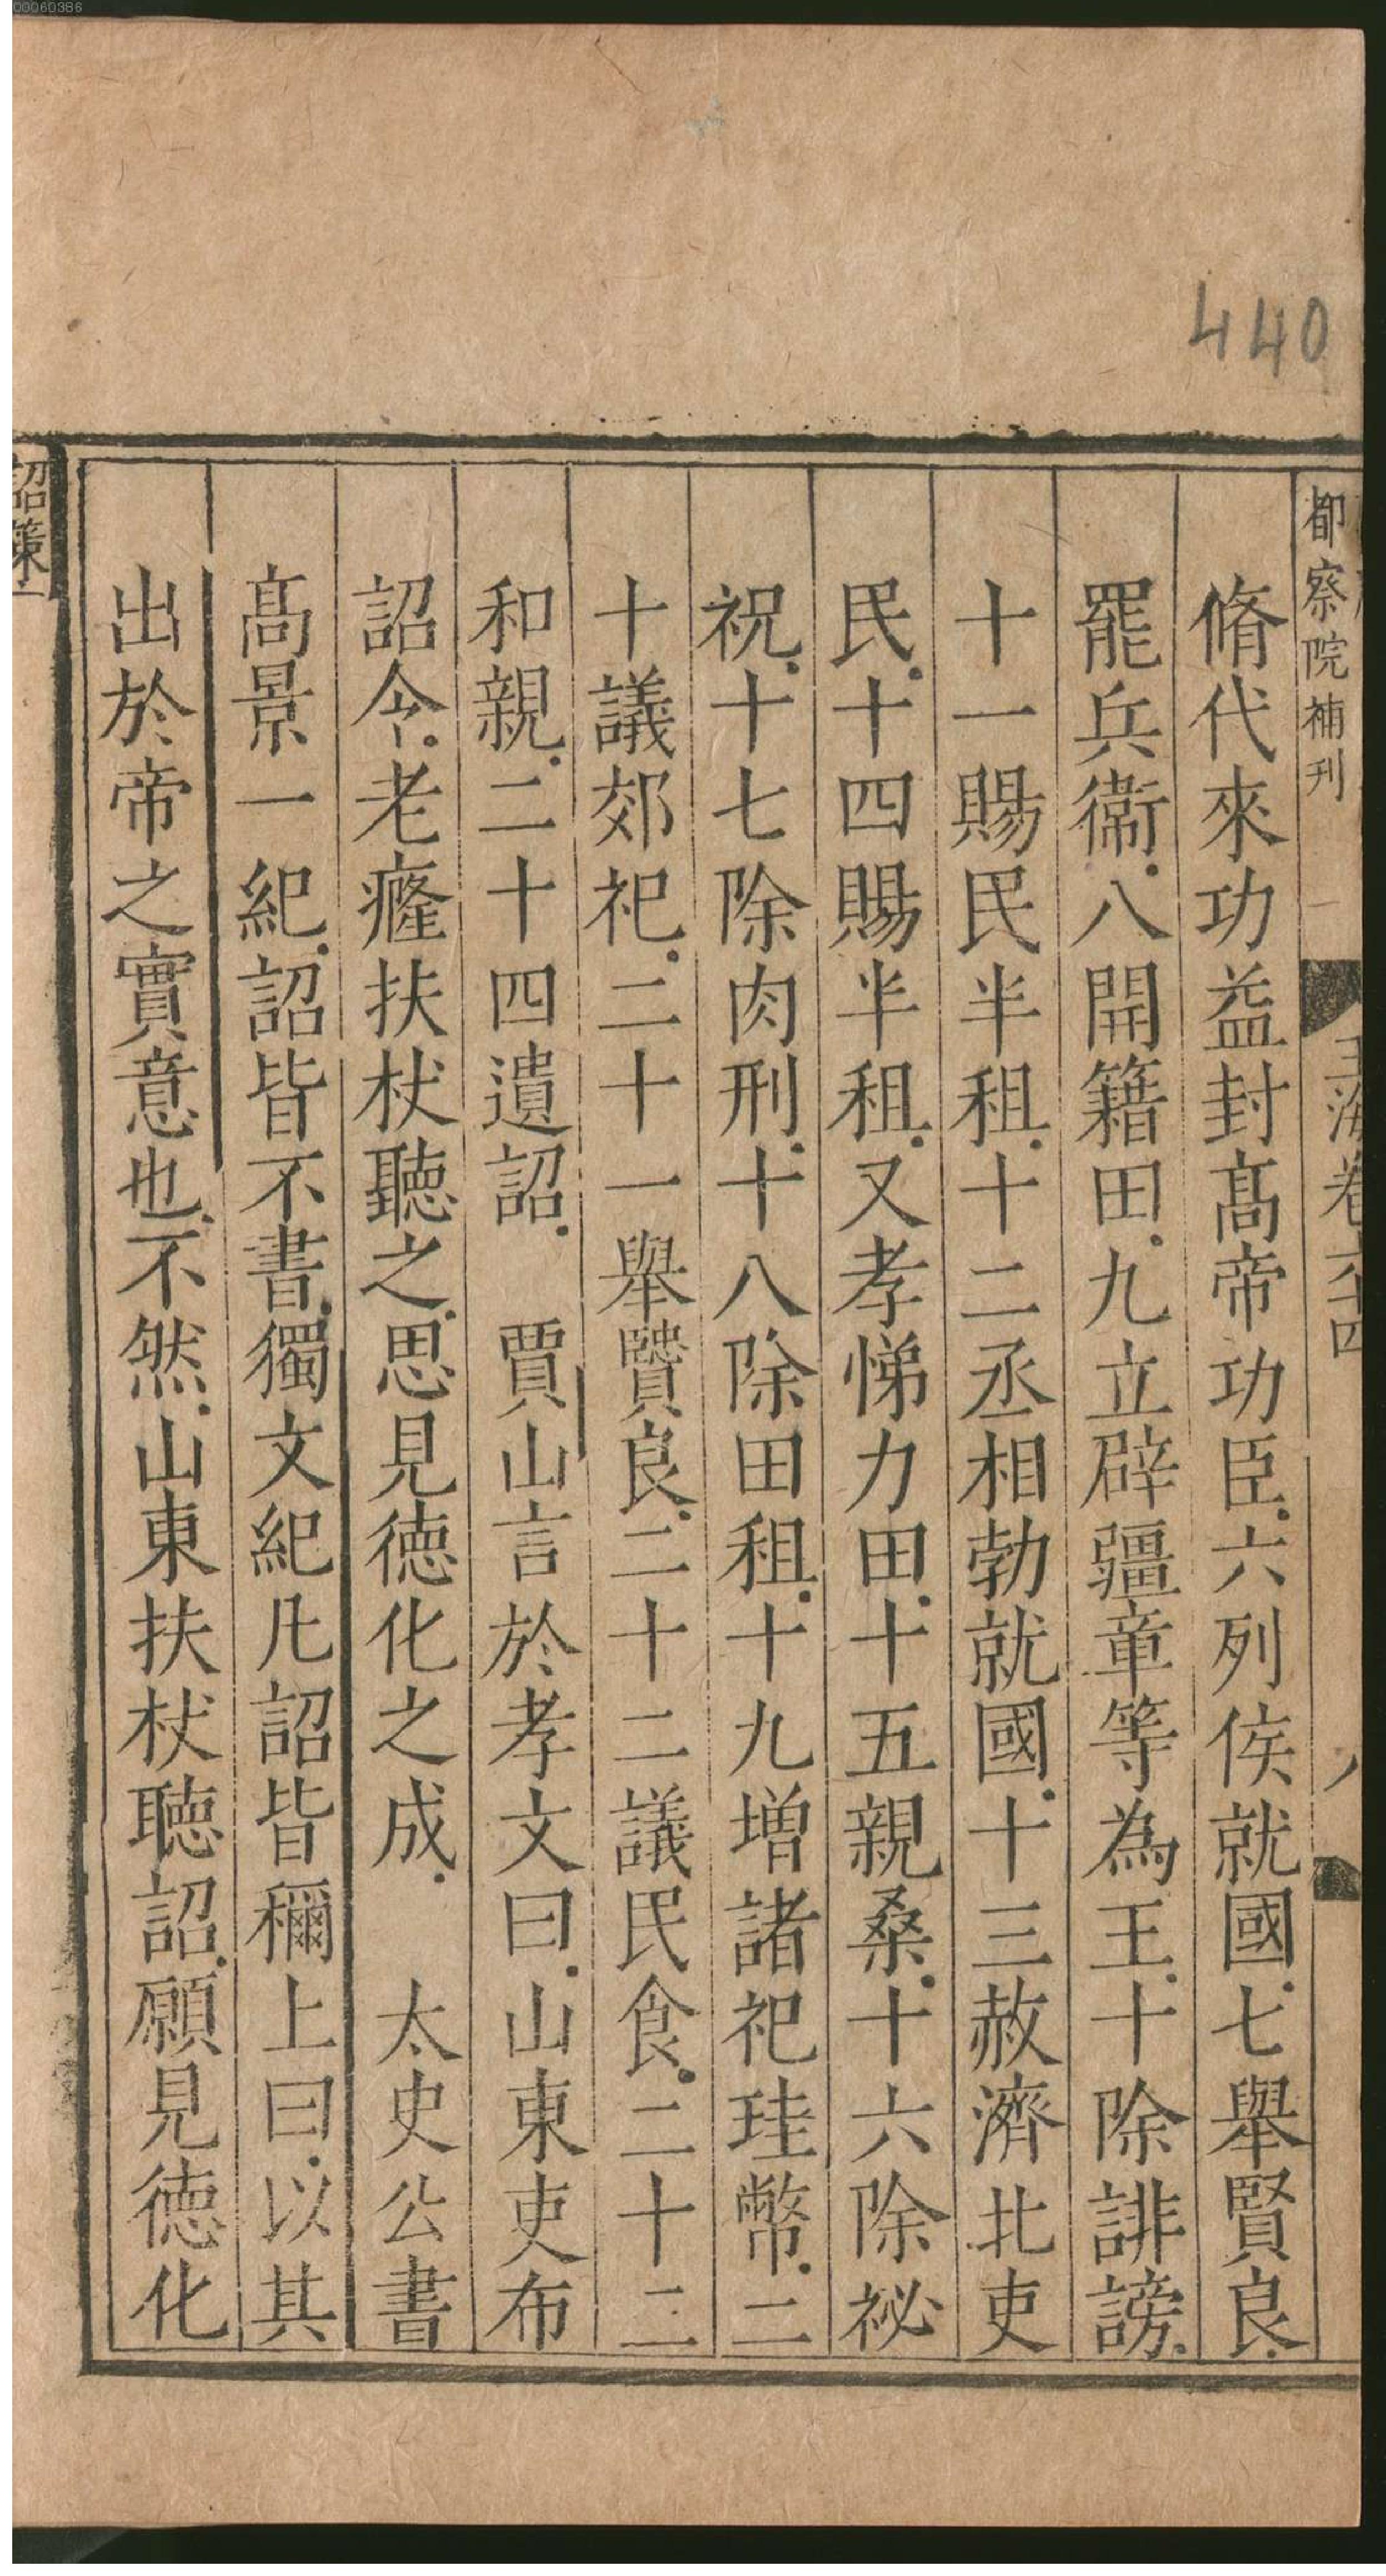 00060386
440
都察院補刊
玉海卷六十四
脩代來功益封髙帝功臣六列侯就國七舉賢良
罷兵衞八開籍田九立辟疆章等為王十除誹謗
十一賜民半租十二丞相勃就國十三赦濟北吏
民十四賜半租又孝悌力田十五親桑十六除祕
祝十七除肉刑十八除田租十九增諸祀珪幣二
十議郊祀二十一舉賢良二十二議民食二十二
和親二十四遺詔　賈山言於孝文曰山東吏布
詔令老癃扶杖聽之思見德化之成　太史公書
髙景一紀詔皆不書獨文紀凡詔皆稱上曰以其
出於帝之實意也不然山東扶杖聽詔願見德化
詔策二